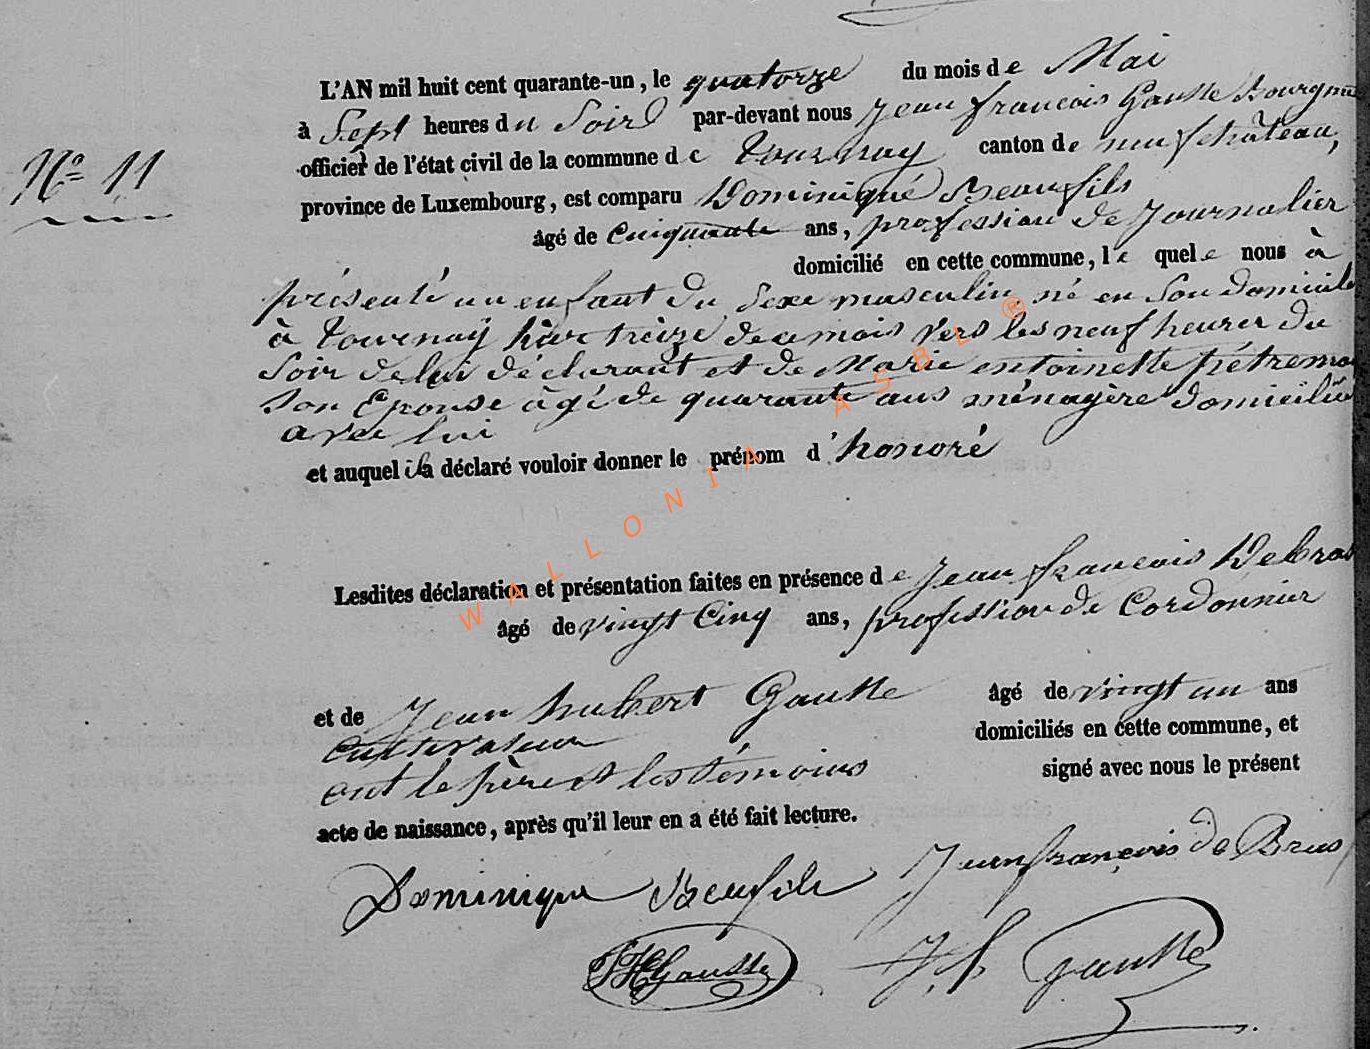 L'AN mil huit cent quarante-un, le quatorze du mois de Mai
à Sept heures du Soir par-devant nous Jean françois Gausse Bourgm
officier de l'état civil de la commune de tournay canton de neufchâteau,
N° 11
province de Luxembourg, est comparu Dominique Beaufils
âgé de Cinquante ans, profession de Journalier
domicilié en cette commune, le quel nous à
présenté un enfant du Sexe masculin né en Son domicile
à tournaÿ hier treize de ce mois vers les neuf heures du
Soir de lui déclarant et de Marie entoinette pétremo
Son Epouse âgé de quarante ans ménagère domiciliée
avec lui
et auquel il a déclaré vouloir donner le prénom d'honoré
Lesdites déclaration et présentation faites en présence de Jean françois Debras
âgé de vingt Cinq ans, profession de Cordonnier
et de Jean hubert Gausse âgé de vingt un ans
Cultivateur domiciliés en cette commune, et
ont le père et les témoins signé avec nous le présent
acte de naissance, après qu'il leur en a été fait lecture.
Dominique Beaufils Jean françois de Bras
JHGausse J f Gausse
WALLONIA ASBL ®